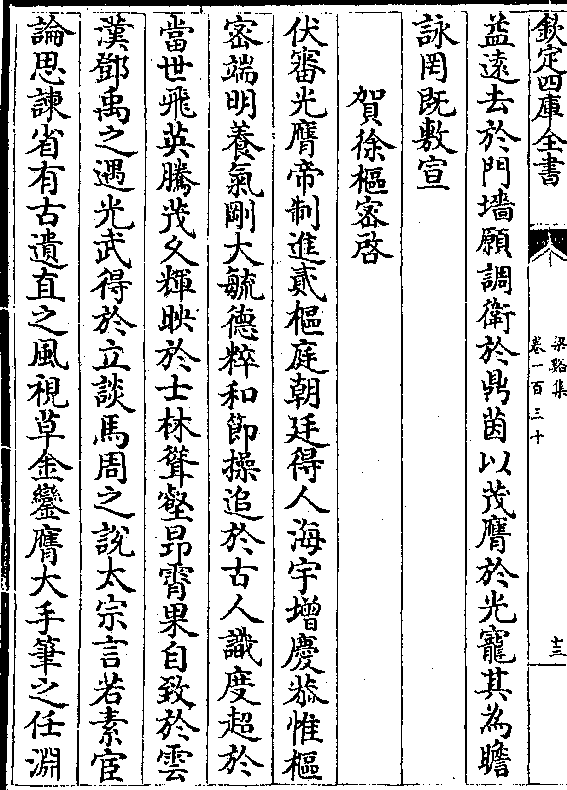 欽定四庫全書
梁谿集
卷一百三十
十三
益遠去於門墻願調衛於鼎茵以茂膺於光寵其為瞻
詠罔既敷宣
賀徐樞密啓
伏審光膺帝制進貳樞庭朝廷得人海宇增慶恭惟樞
密端明養氣剛大毓德粹和節操追於古人識度超於
當世飛英騰茂久輝映於士林聳壑昻霄果自致於雲
漢鄧禹之遇光武得於立談馬周之說太宗言若素宦
論思諫省有古遺直之風視草金鑾膺大手筆之任淵